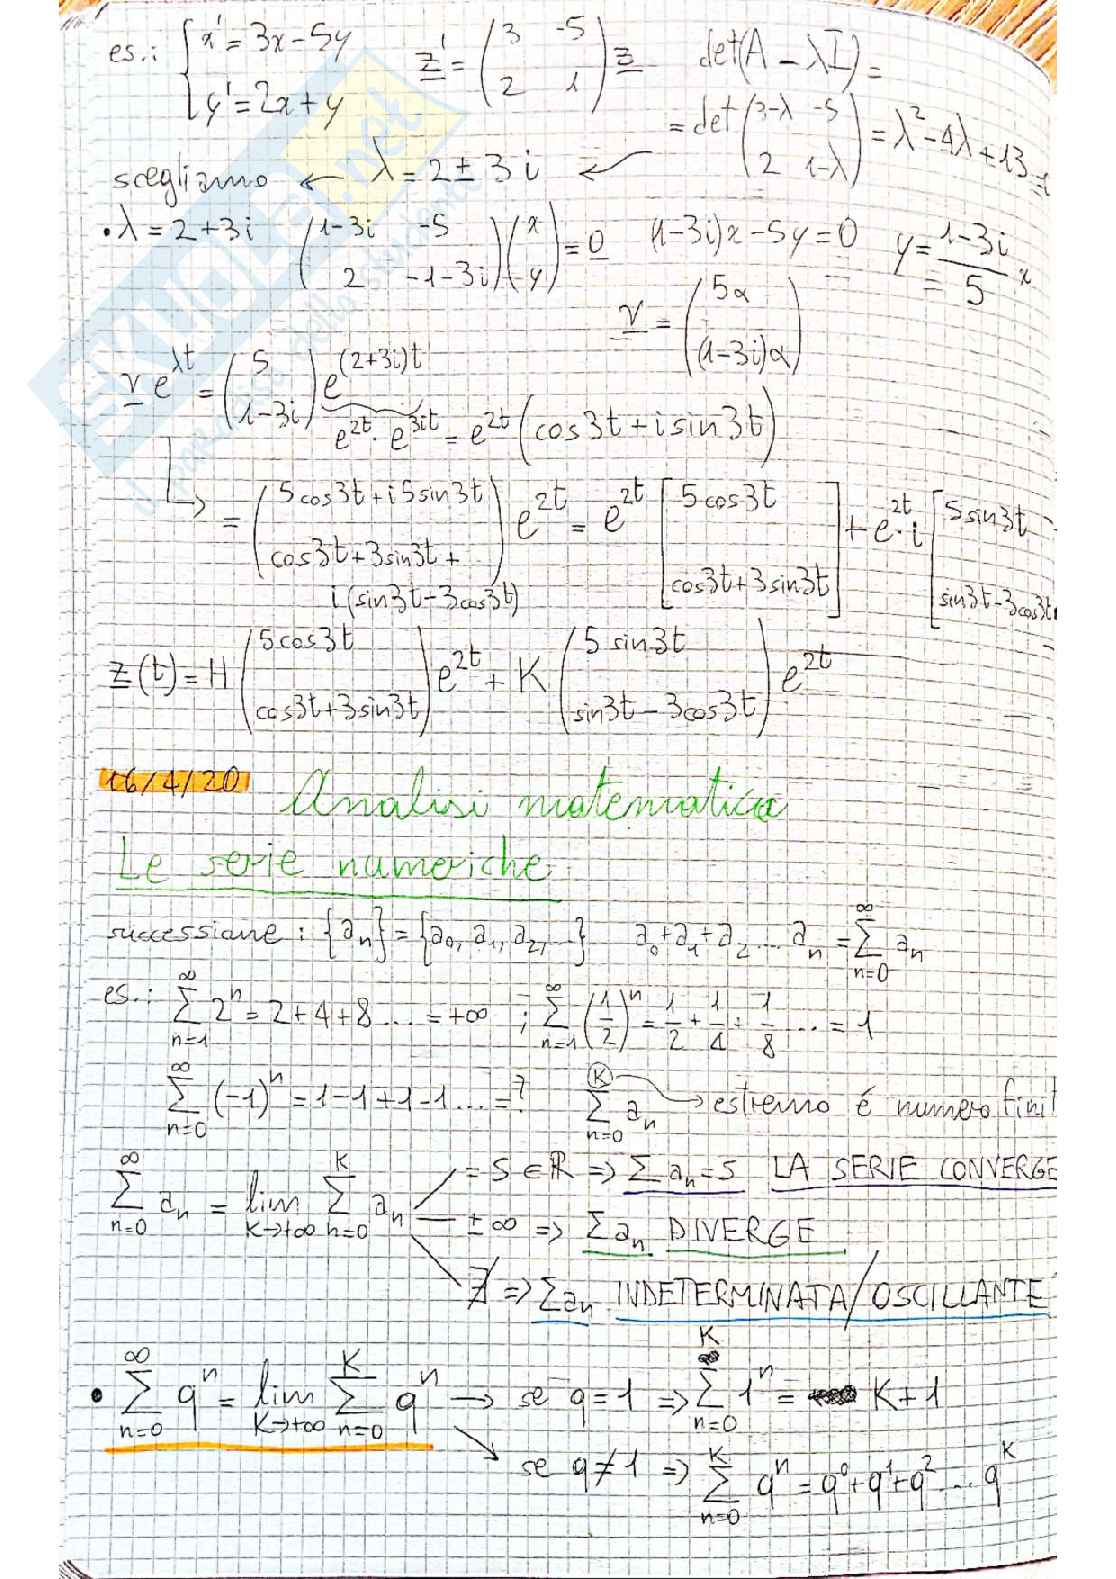 es.: { x' = 3x - 5y   z' = (3 -5; 2 1) z   det(A - λI) =
y' = 2x + y   = det (3-λ -5; 2 1-λ) = λ² - 4λ + 13 =
scegliamo ← λ = 2 ± 3i ←
• λ = 2 + 3i   (1-3i -5; 2 -1-3i)(x; y) = 0   (1-3i)x - 5y = 0   y = (1-3i)/5 x
v = (5α; (1-3i)α)
v e^{λt} = (5; 1-3i) e^{(2+3i)t}
e^{2t} · e^{3it} = e^{2t} (cos3t + i sin3t)
↳ = (5cos3t + i5sin3t; cos3t + 3sin3t + i(sin3t - 3cos3t)) e^{2t} = e^{2t} [5cos3t; cos3t + 3sin3t] + e^{2t}·i [5sin3t; sin3t - 3cos3t
z(t) = H (5cos3t; cos3t + 3sin3t) e^{2t} + K (5 sin3t; sin3t - 3cos3t) e^{2t}
16/4/20   Analisi matematica
Le serie numeriche
successione: {a_n} = {a_0, a_1, a_2, ...}   a_0 + a_1 + a_2 .... a_n = ∑_{n=0}^{∞} a_n
es.: ∑_{n=1}^{∞} 2^n = 2 + 4 + 8 .... = +∞ ; ∑_{n=1}^{∞} (1/2)^n = 1/2 + 1/4 + 1/8 ... = 1
∑_{n=0}^{∞} (-1)^n = 1 - 1 + 1 - 1 .... = ?   ∑_{n=0}^{K} a_n → estremo é numero finit
∑_{n=0}^{∞} a_n = lim_{K→+∞} ∑_{n=0}^{K} a_n = S ∈ ℝ ⇒ ∑ a_n = S LA SERIE CONVERGE
± ∞ ⇒ ∑ a_n DIVERGE
∄ ⇒ ∑ a_n INDETERMINATA/OSCILLANTE
• ∑_{n=0}^{∞} q^n = lim_{K→+∞} ∑_{n=0}^{K} q^n → se q = 1 ⇒ ∑_{n=0}^{K} 1^n = K + 1
se q ≠ 1 ⇒ ∑_{n=0}^{K} q^n = q^0 + q^1 + q^2 .... q^K